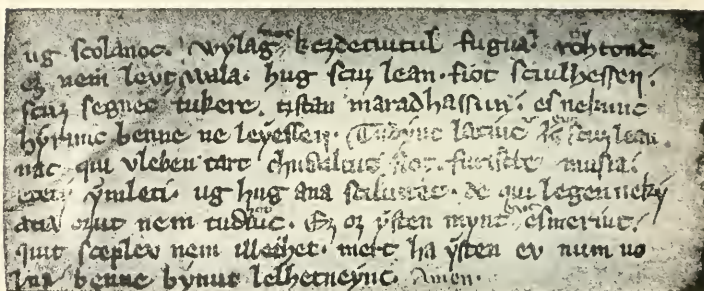 ug scolanoc· wylag^noc kezdetuitul fugua· rohtonc
ez nem levt wala· hug scuz lean· fiot sciulhessen·
scuz segnec tukere· tistan maradhassun· es nekunc
hyrunc benne ne leyessen· Tudyuc latiuc scuz lean
nac· qui vleben tart chudaltus fiot· furiscte musia·
etety ymleti· ug hug ana sciluttet· de qui legen neky
atia ozut nem tudhotuc· Ez oz ysten mynt evt esmeriuc·
quit sceplev nem illethet· mert ha ysten ev num uo
lna benne bynut lelhetneync· Amen·